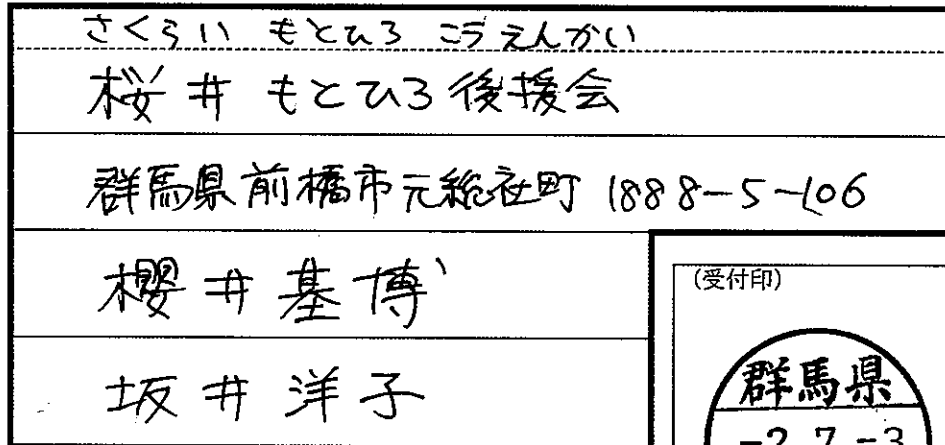 さくらい もとひろ こうえんかい
桜井もとひろ後援会
群馬県前橋市元総社町1888-5-106
櫻井基博
坂井洋子
(受付印)
群馬県
-2.7.-3